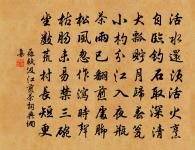 活水還須活火烹
自臨釣石取深清
大瓢貯月歸春甕
小杓分江入夜瓶
茶雨已翻煎處腳
松風忽作瀉時聲
枯腸未易禁三碗
坐數荒村長短更
蘇軾汲江煎茶詞典網
集